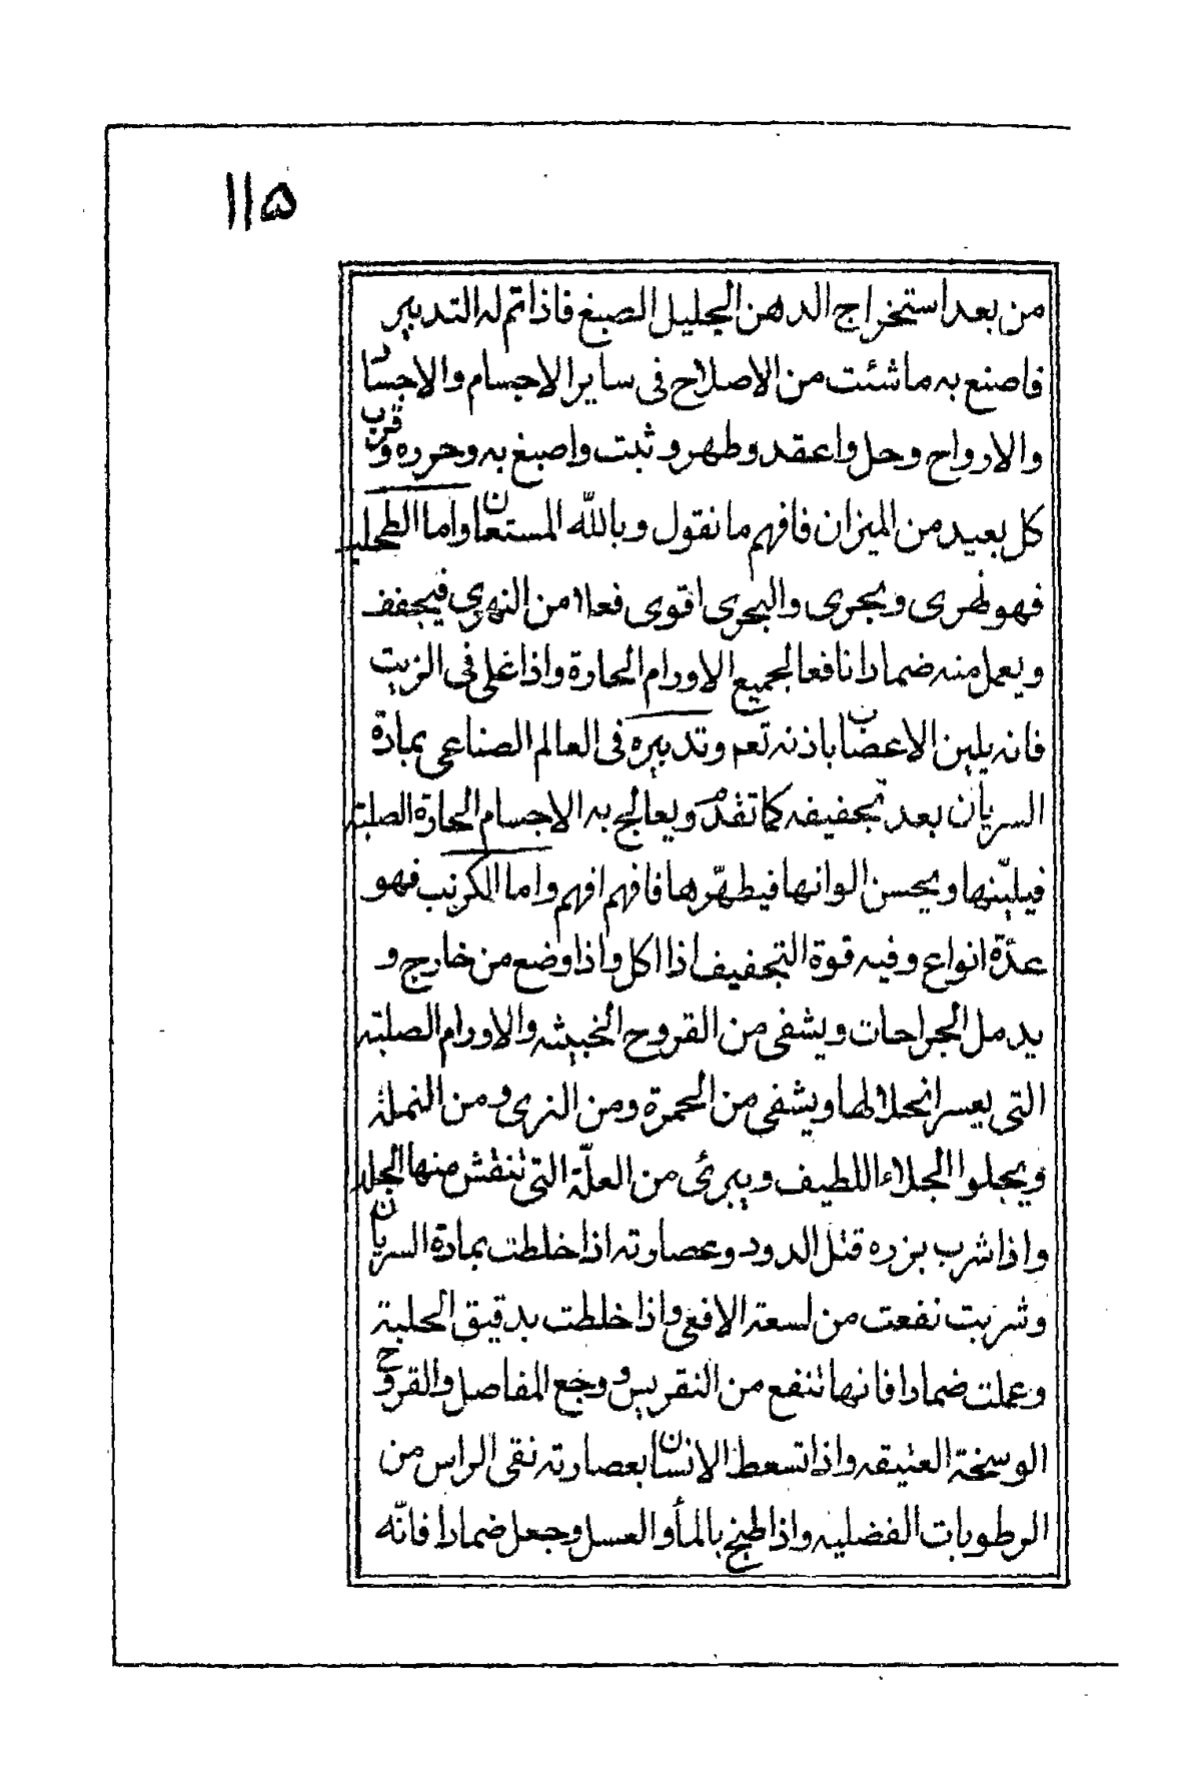 ١١۵
من بعد استخراج الدهن الجليل الصبغ فاذا تم له التدبير
فاصنع به ما شئت من الاصلاح فى ساير الاجسام والاجساد
والارواح وحل واعقد وطهر وثبت واصبغ به وحرره وقرب
كل بعيد من الميزان فافهم ما نقول وبالله المستعان واما الطحلب
فهو نهرى وبحرى والبحرى اقوى فعلا من النهرى فيجفف
ويعمل منه ضمادا نافعا لجميع الاورام الحارة واذا غلى فى الزيت
فانه يلين الاعصاب باذنه تعم وتدبيره فى العالم الصناعى بمادة
السريان بعد تجفيفه كما تقدم ويعالج به الاجسام الحارة الصلبة
فيليّنها ويحسن الوانها فيطهّرها فافهم افهم واما الكرنب فهو
عدّة انواع وفيه قوة التجفيف اذا اكل واذا وضع من خارج و
يدمل الجراحات ويشفى من القروح الخبيثه والاورام الصلبة
التى يعسر انحلالها ويشفى من الحمرة ومن الشرى ومن النملة
ويجلوا الجلاء اللطيف ويبرئ من العلّة التى تنقش منها الجلد
واذا شرب بزره قتل الدود وعصارته اذا خلطت بمادة السريان
وشربت نفعت من لسعة الافعى واذا خلطت بدقيق الحلبة
وعملت ضمادا فانها تنفع من النقريس ووجع المفاصل والقروح
الوسخة العتيقه واذا تسعط الانسان بعصارته نقى الراس من
الرطوبات الفضليه واذا طبخ بالمأ والعسل وجعل ضمادا فانّه